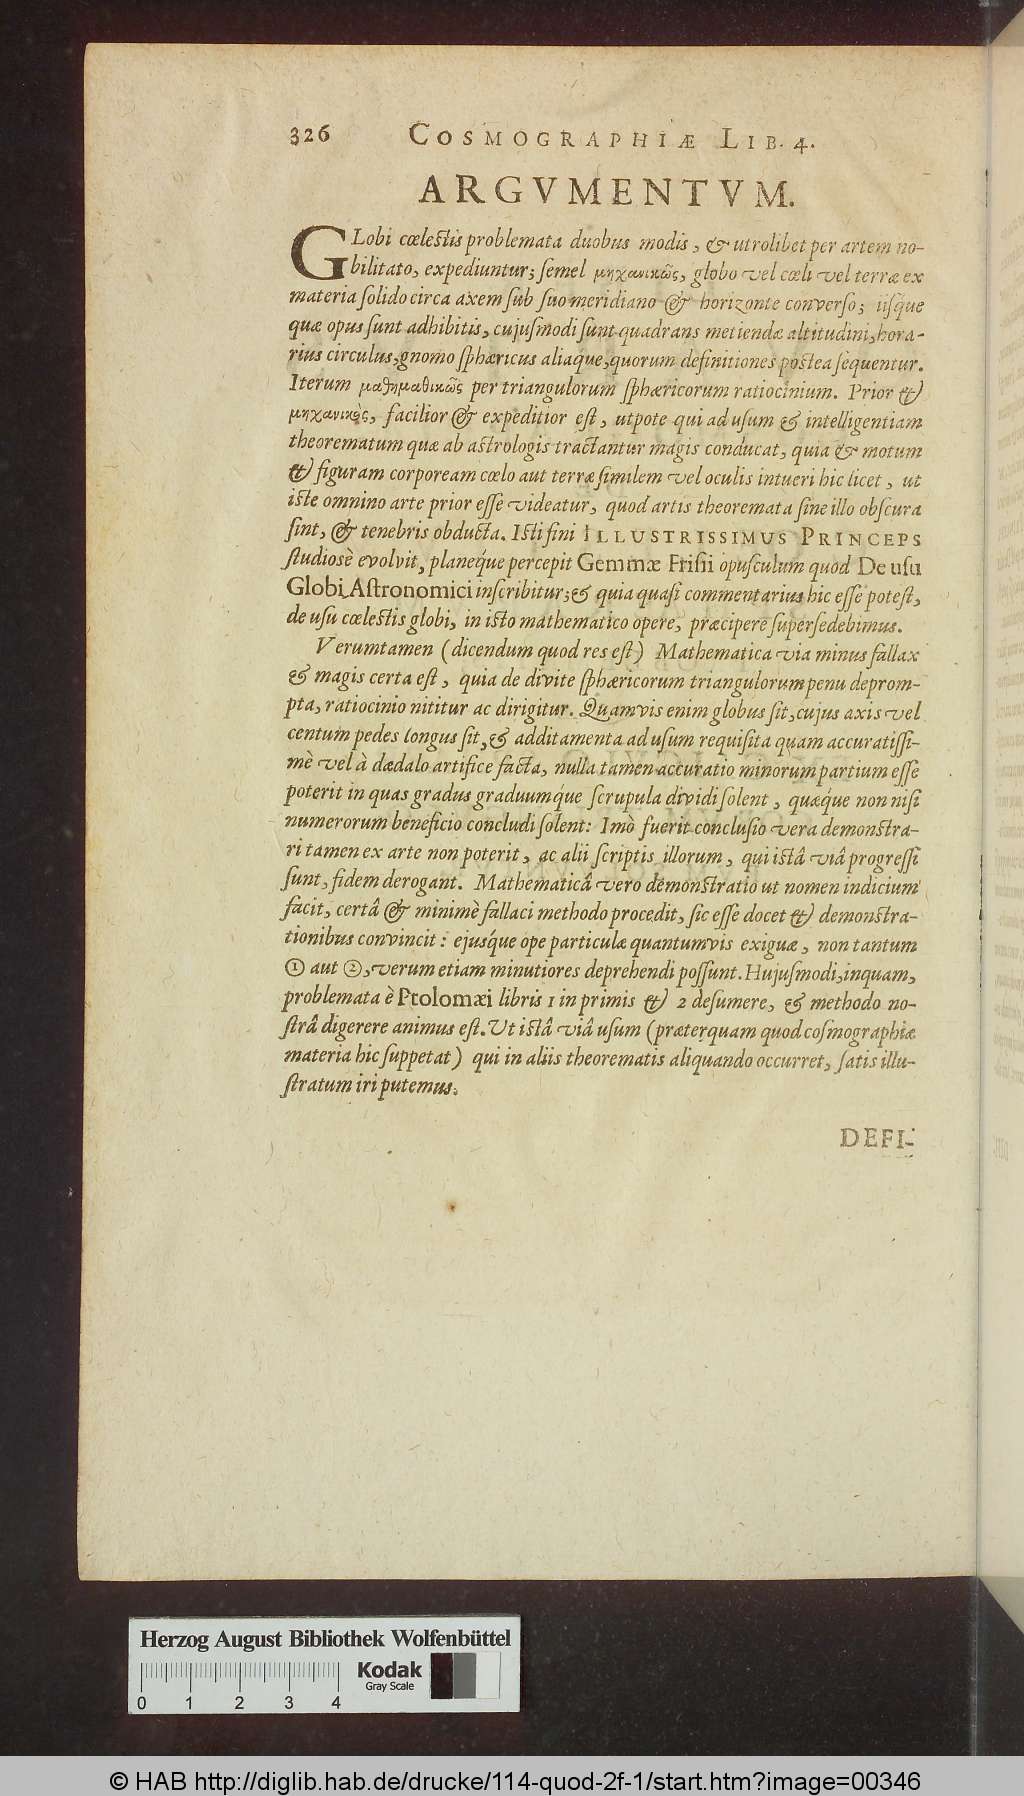 326 COSMOGRAPHIÆ LIB. 4.
ARGVMENTVM.
GLobi cœlestis problemata duobus modis, & utrolibet per artem no-
bilitato, expediuntur; semel μηχανικῶς, globo vel cœli vel terræ ex
materia solido circa axem sub suo meridiano & horizonte converso; iisq́ue
quæ opus sunt adhibitis, cujusmodi sunt quadrans metiendæ altitudini, hora-
rius circulus, gnomo sphæricus aliaque, quorum definitiones postea sequentur.
Iterum μαθημαθικῶς per triangulorum sphæricorum ratiocinium. Prior &
μηχανικὸς, facilior & expeditior est, utpote qui ad usum & intelligentiam
theorematum quæ ab astrologis tractantur magis conducat, quia & motum
& figuram corpoream cœlo aut terræ similem vel oculis intueri hic licet, ut
iste omnino arte prior esse videatur, quod artis theoremata sine illo obscura
sint, & tenebris obducta. Isti fini ILLUSTRISSIMUS PRINCEPS
studiosè evolvit, planeq́ue percepit Gemmæ Frisii opusculum quod De usu
Globi Astronomici inscribitur; & quia quasi commentarius hic esse potest,
de usu cœlestis globi, in isto mathematico opere, præcipere supersedebimus.
Verumtamen (dicendum quod res est) Mathematica via minus fallax
& magis certa est, quia de divite sphæricorum triangulorum penu deprom-
pta, ratiocinio nititur ac dirigitur. Quamvis enim globus sit, cujus axis vel
centum pedes longus sit, & additamenta ad usum requisita quam accuratissi-
mè vel à dædalo artifice facta, nulla tamen accuratio minorum partium esse
poterit in quas gradus graduumq́ue scrupula dividi solent, quæq́ue non nisi
numerorum beneficio concludi solent: Imò fuerit conclusio vera demonstra-
ri tamen ex arte non poterit, ac alii scriptis illorum, qui istâ viâ progressi
sunt, fidem derogant. Mathematicâ vero demonstratio ut nomen indicium
facit, certâ & minimè fallaci methodo procedit, sic esse docet & demonstra-
tionibus convincit: ejusq́ue ope particulæ quantumvis exiguæ, non tantum
① aut ②, verum etiam minutiores deprehendi possunt. Hujusmodi, inquam,
problemata è Ptolomæi libris 1 in primis & 2 desumere, & methodo no-
strâ digerere animus est. Ut istâ viâ usum (præterquam quod cosmographiæ
materia hic suppetat) qui in aliis theorematis aliquando occurret, satis illu-
stratum iri putemus.
DEFI-
Herzog August Bibliothek Wolfenbüttel
Kodak
Gray Scale
0 1 2 3 4
© HAB http://diglib.hab.de/drucke/114-quod-2f-1/start.htm?image=00346